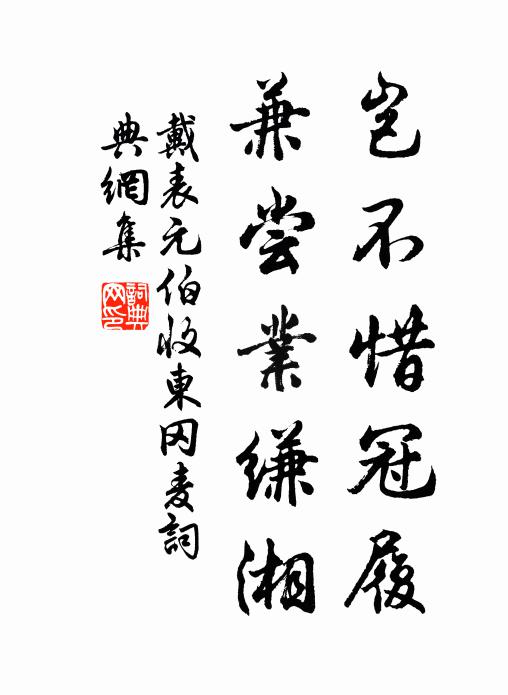 岂不惜冠履
兼尝業縑湘
戴表元伯收東冈麦詞
典網集
詞典
网印